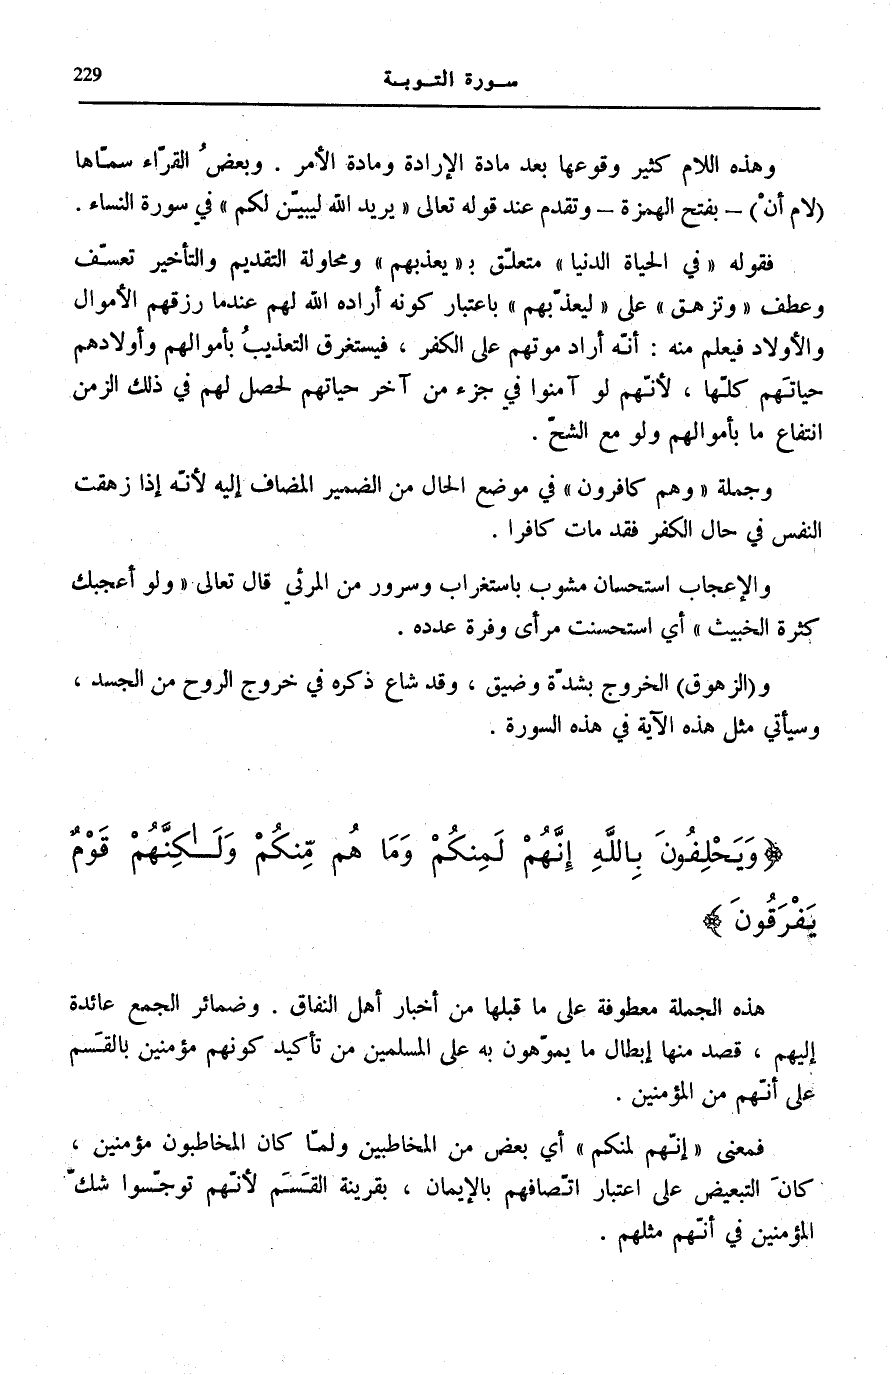 سـورة التـوبـة 229
وهذه اللام كثير وقوعها بعد مادة الإرادة ومادة الأمر . وبعضُ القرّاء سمّاها
(لام أنْ) – بفتح الهمزة – وتقدم عند قوله تعالى « يريد الله ليبيّن لكم » في سورة النساء .
فقوله « في الحياة الدنيا » متعلّق بـ« يعذبهم » ومحاولة التقديم والتأخير تعسّف
وعطف « وتزهق » على « ليعذّبهم » باعتبار كونه أراده الله لهم عندما رزقهم الأموال
والأولاد فيعلم منه : أنّه أراد موتهم على الكفر ، فيستغرق التعذيبُ بأموالهم وأولادهم
حياتَهم كلّها ، لأنّهم لو آمنوا في جزء من آخر حياتهم لحصل لهم في ذلك الزمن
انتفاع ما بأموالهم ولو مع الشحّ .
وجملة « وهم كافرون » في موضع الحال من الضمير المضاف إليه لأنّه إذا زهقت
النفس في حال الكفر فقد مات كافرا .
والإعجاب استحسان مشوب باستغراب وسرور من المرئي قال تعالى « ولو أعجبك
كثرة الخبيث » أي استحسنت مرأى وفرة عدده .
و(الزهوق) الخروج بشدّة وضيق ، وقد شاع ذكره في خروج الروح من الجسد ،
وسيأتي مثل هذه الآية في هذه السورة .
﴿وَيَحْلِفُونَ بِاللَّهِ إِنَّهُمْ لَمِنكُمْ وَمَا هُم مِّنكُمْ وَلَـٰكِنَّهُمْ قَوْمٌ
يَفْرَقُونَ ﴾
هذه الجملة معطوفة على ما قبلها من أخبار أهل النفاق . وضمائر الجمع عائدة
إليهم ، قصد منها إبطال ما يموّهون به على المسلمين من تأكيد كونهم مؤمنين بالقَسم
على أنّهم من المؤمنين .
فمعنى « إنّهم لمنكم » أي بعض من المخاطبين ولمّا كان المخاطبون مؤمنين ،
كانَ التبعيض على اعتبار اتّصافهم بالإيمان ، بقرينة القَسَم لأنّهم توجّسوا شكّ
المؤمنين في أنّهم مثلهم .